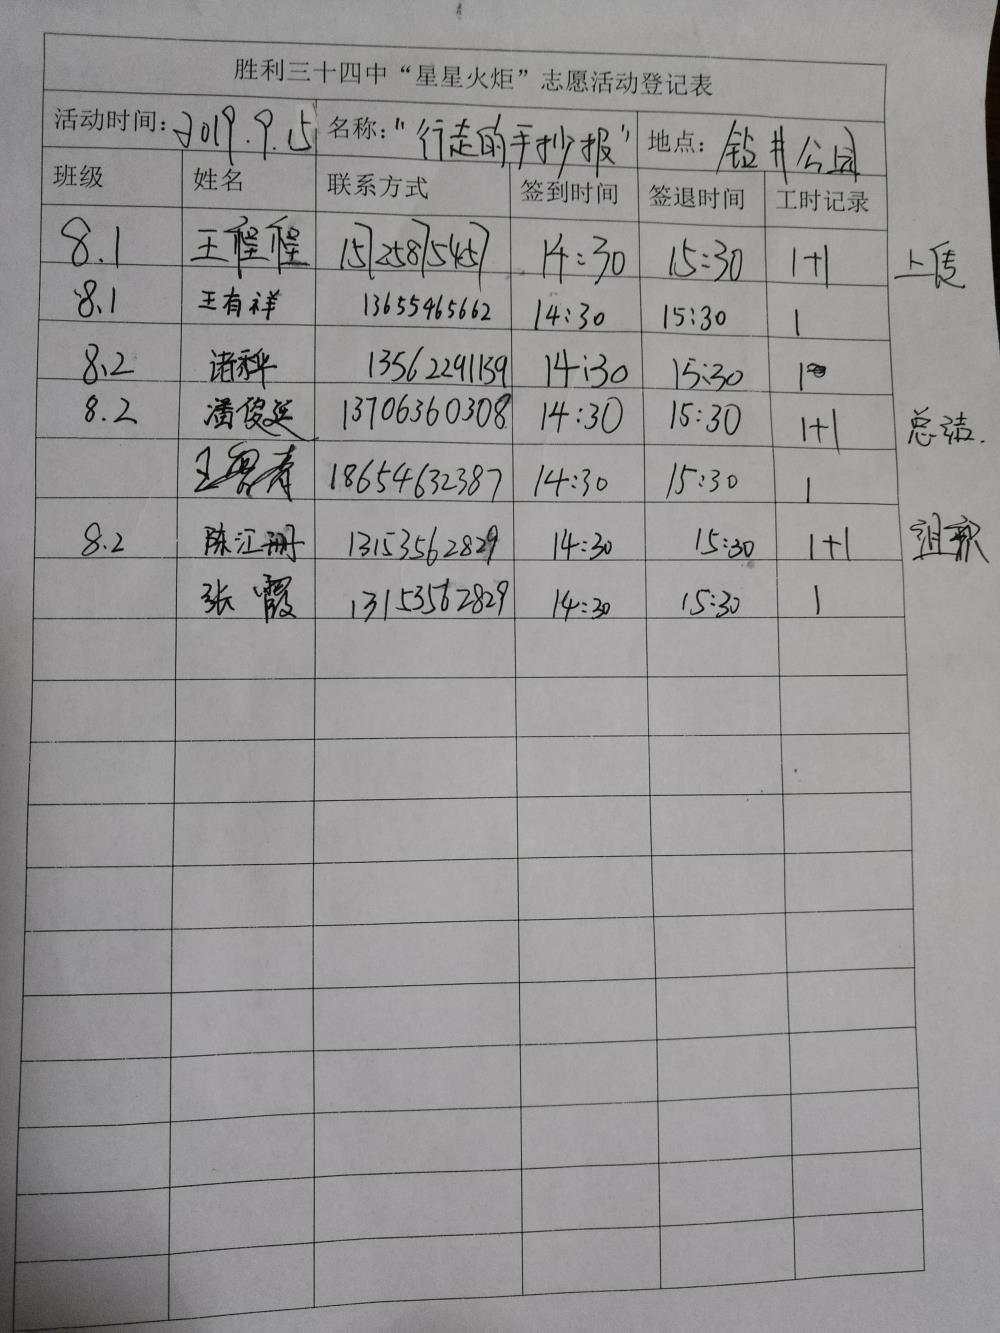 胜利三十四中“星星火炬”志愿活动登记表
活动时间：2019.9.15 名称：“行走的手抄报” 地点：钻井公园
班级 姓名 联系方式 签到时间 签退时间 工时记录
8.1 王程程 15725875457 14:30 15:30 1+1 上传
8.1 王有祥 13655465662 14:30 15:30 1
8.2 13562291139 14:30 15:30 1
8.2 潘俊延 13706360308 14:30 15:30 1+1 总结.
18654632387 14:30 15:30 1
8.2 陈江 13153562829 14:30 15:30 1+1 组织
张霞 13153562829 14:30 15:30 1